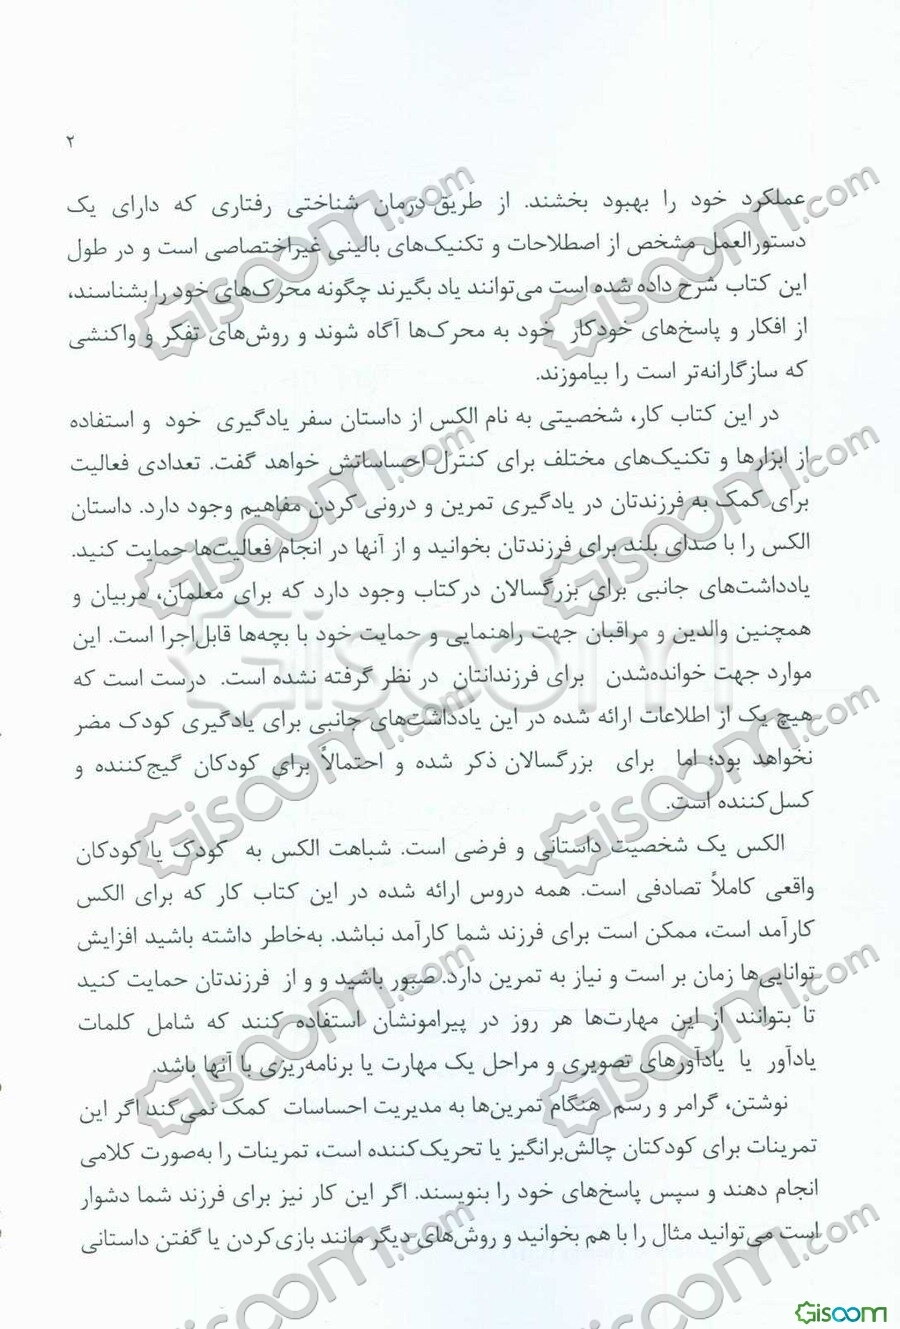 ۲
عملکرد خود را بهبود بخشند. از طریق درمان شناختی رفتاری که دارای یک
دستورالعمل مشخص از اصطلاحات و تکنیک‌های بالینی غیراختصاصی است و در طول
این کتاب شرح داده شده است می‌توانند یاد بگیرند چگونه محرک‌های خود را بشناسند،
از افکار و پاسخ‌های خودکار خود به محرک‌ها آگاه شوند و روش‌های تفکر و واکنشی
که سازگارانه‌تر است را بیاموزند.
در این کتاب کار، شخصیتی به نام الکس از داستان سفر یادگیری خود و استفاده
از ابزارها و تکنیک‌های مختلف برای کنترل احساساتش خواهد گفت. تعدادی فعالیت
برای کمک به فرزندتان در یادگیری تمرین و درونی کردن مفاهیم وجود دارد. داستان
الکس را با صدای بلند برای فرزندتان بخوانید و از آنها در انجام فعالیت‌ها حمایت کنید.
یادداشت‌های جانبی برای بزرگسالان درکتاب وجود دارد که برای معلمان، مربیان و
همچنین والدین و مراقبان جهت راهنمایی و حمایت خود با بچه‌ها قابل‌اجرا است. این
موارد جهت خوانده‌شدن برای فرزندانتان در نظر گرفته نشده است. درست است که
هیچ یک از اطلاعات ارائه شده در این یادداشت‌های جانبی برای یادگیری کودک مضر
نخواهد بود؛ اما برای بزرگسالان ذکر شده و احتمالاً برای کودکان گیج‌کننده و
کسل‌کننده است.
الکس یک شخصیت داستانی و فرضی است. شباهت الکس به کودک یا کودکان
واقعی کاملاً تصادفی است. همه دروس ارائه شده در این کتاب کار که برای الکس
کارآمد است، ممکن است برای فرزند شما کارآمد نباشد. به‌خاطر داشته باشید افزایش
توانایی‌ها زمان بر است و نیاز به تمرین دارد. صبور باشید و و از فرزندتان حمایت کنید
تا بتوانند از این مهارت‌ها هر روز در پیرامونشان استفاده کنند که شامل کلمات
یادآور یا یادآورهای تصویری و مراحل یک مهارت یا برنامه‌ریزی با آنها باشد.
نوشتن، گرامر و رسم هنگام تمرین‌ها به مدیریت احساسات کمک نمی‌کند اگر این
تمرینات برای کودکتان چالش‌برانگیز یا تحریک‌کننده است، تمرینات را به‌صورت کلامی
انجام دهند و سپس پاسخ‌های خود را بنویسند. اگر این کار نیز برای فرزند شما دشوار
است می‌توانید مثال را با هم بخوانید و روش‌های دیگر مانند بازی‌کردن یا گفتن داستانی
Gisoom